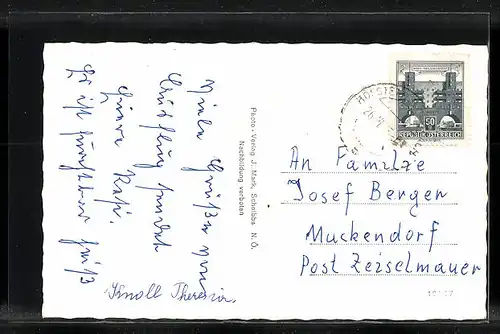 Viele Grüße vom
Ausflug sendet
Eure Resi.
Es ist furchtbar heiß
Knoll Theresia.
Photo-Verlag J. Mark, Scheibbs N. Ö.
Nachbildung verboten
50
REPUBLIK ÖSTERREICH
An Familie
Josef Berger
Muckendorf
Post Zeiselmauer